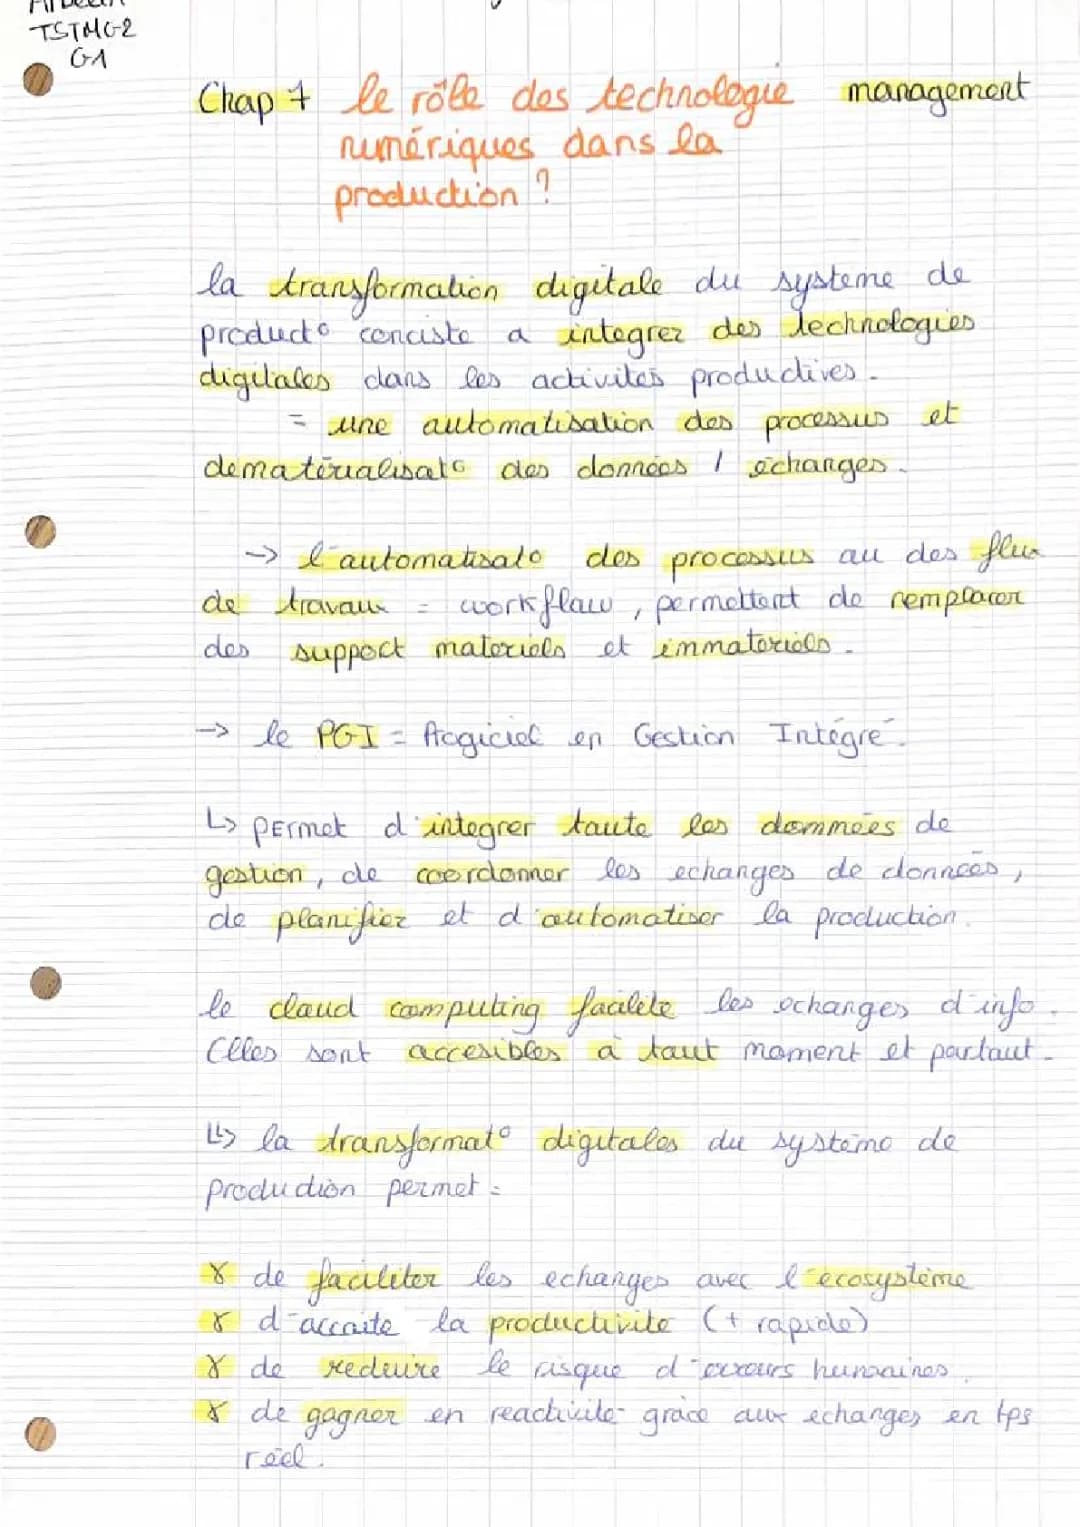 TSTMG2
G1
Chap 7 le rôle des technologie management
numériques dans la
production ?
la transformation digitale du systeme de
product° conciste a integrer des technologies
digitales dans les activités productives.
= une automatisation des processus et
dematérialisat° des données / échanges.
-> l'automatisat° des processus ou des flux
de travaux = workflow, permettent de remplacer
des support materiels et immateriels.
-> le PGI = Progiciel en Gestion Intégré.
↳ permet d'integrer toute les données de
gestion, de coordonner les echanges de données,
de planifier et d'automatiser la production.
le cloud computing facilite les echanges d'info.
Elles sont accesibles a tout moment et partout.
↳ la transformat° digitales du système de
production permet :
de faciliter les echanges avec l'ecosystème
d'accroite la productivite (+ rapide)
de reduire le risque d'erreurs humaines.
de gagner en reactivité grâce aux echanges en tps
réel.